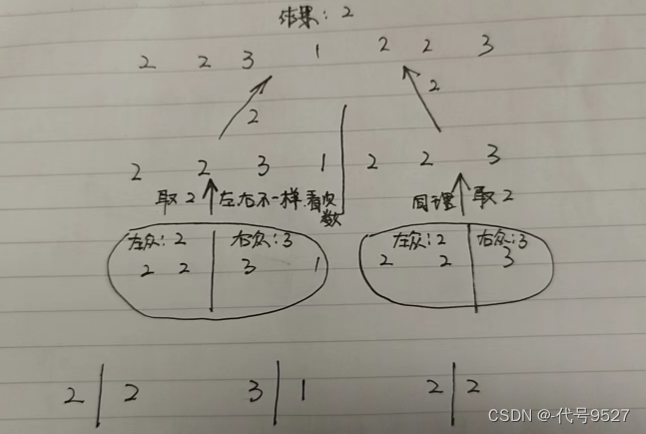 结果：2
2 2 3 1 2 2 3
2 2
2 2 3 1 2 2 3
取2 左右不一样，看次数 同理 取2
左众：2 右众：3 左众：2 右众：3
2 2 3 1 2 2 3
2 2 3 1 2 2
CSDN @-代号9527